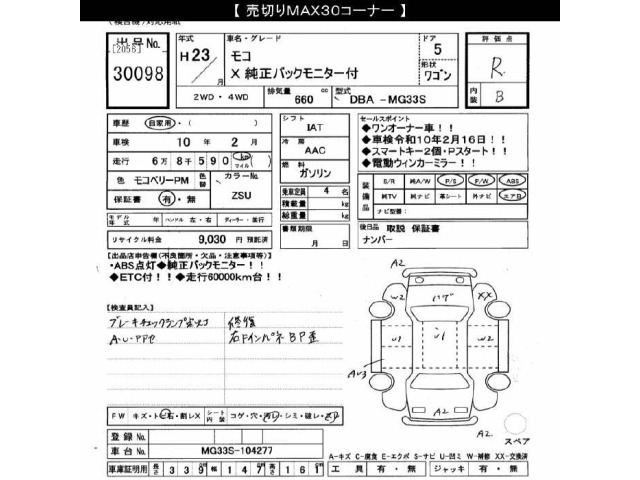 【 売切りMAX30コーナー 】
(検査機)対応用紙
出品No.
[2056]
30098
年式
H23
年
月
車名・グレード
モコ
X 純正バックモニター付
ドア
5
形状
ワゴン
評価点
R
内装
B
2WD・4WD
排気量
660
cc
型式
DBA -MG33S
車歴
自家用・( )
車検
10 年 2 月
走行
6万 8千 590 km マイル
色
モコベリーPM
色替
カラーNo.
ZSU
保証書
有・無
シフト
IAT
冷房
AAC
燃料
ガソリン
乗車定員 4 名
積載量 kg
総重量 kg
書類期限
月 日
セールスポイント
◆ワンオーナー車!!
◆車検令和10年2月16日!!
◆スマートキー2個・Pスタート!!
◆電動ウィンカーミラー!!
装備品
S/R 純A/W P/S P/W ABS
純TV 純ナビ 革シート 外ナビ エアB
ナビ型番:
モデル年式
年
ハンドル 左・右
ディーラー・並行
リサイクル料金 9,030 円 預託済
後日品
取説 保証書
ナンバー
【出品店申告欄(不良箇所・欠品・注意事項等)】
・ABS点灯◆純正バックモニター!!
◆ETC付!!◆走行60000km台!!
【検査員記入】
ブレーキチェックランプ点灯
修復
A・U・PPセ
右FインパネBP歪
A2
W2
ハゲ
XX
U1
U1
W2
AU3
A2
A2
スペア
FW
キズ・トビ石・割レX
シート内装
コゲ・穴・汚レ・シミ・破レ・スレ
登録No.
車台No.
MG33S-104277
A-キズ C-腐食 E-エクボ S-サビ U-凹ミ W-補修 XX-交換済
車庫証明用 長さ 339 幅 147 高さ 161
工具 有・無
ジャッキ 有・無